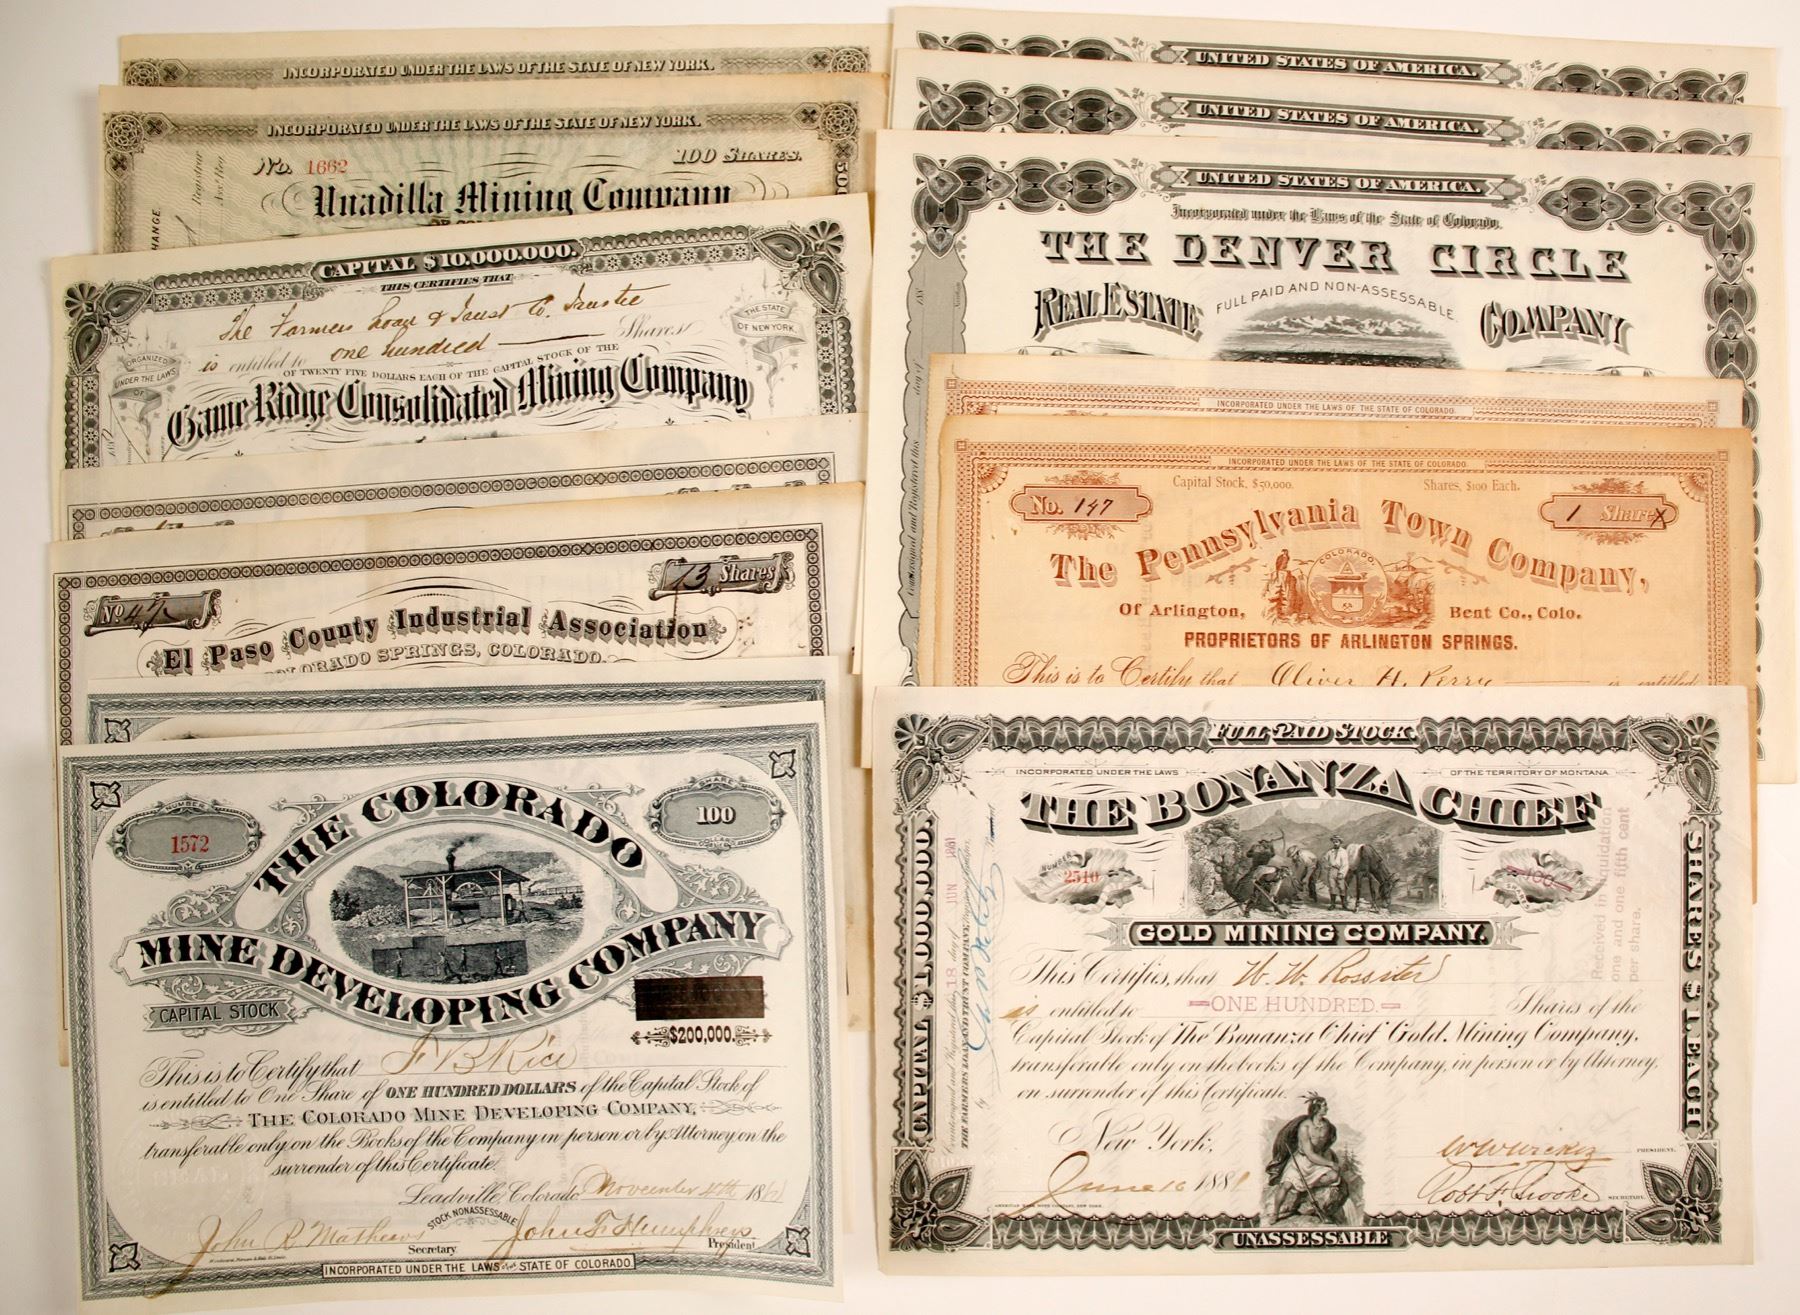 INCORPORATED UNDER THE LAWS OF THE STATE OF NEW YORK.
INCORPORATED UNDER THE LAWS OF THE STATE OF NEW YORK.
No. 1662
100 SHARES.
Registrar
Unadilla Mining Company
CAPITAL $10,000,000.
THIS CERTIFIES THAT
The Farmers Loan & Trust Co. Trustee
is entitled to one hundred Shares
OF TWENTY FIVE DOLLARS EACH OF THE CAPITAL STOCK OF THE
ORGANIZED UNDER THE LAWS OF
THE STATE OF NEW YORK
Game Ridge Consolidated Mining Company
No 47
13 Shares
El Paso County Industrial Association
COLORADO SPRINGS, COLORADO.
NUMBER
1572
SHARE
100
DOLLARS
THE COLORADO
MINE DEVELOPING COMPANY
CAPITAL STOCK
$200,000.
This is to Certify that F B Rice
is entitled to One Share of ONE HUNDRED DOLLARS of the Capital Stock of
THE COLORADO MINE DEVELOPING COMPANY,
transferable only on the Books of the Company in person or by Attorney on the
surrender of this Certificate.
Leadville, Colorado November 4th 18
STOCK NONASSESSABLE
John R. Mathews
Secretary
John F. Humphreys
President
INCORPORATED UNDER THE LAWS OF THE STATE OF COLORADO
UNITED STATES OF AMERICA.
UNITED STATES OF AMERICA.
UNITED STATES OF AMERICA.
Incorporated under the Laws of the State of Colorado.
THE DENVER CIRCLE
REAL ESTATE COMPANY
FULL PAID AND NON-ASSESSABLE.
INCORPORATED UNDER THE LAWS OF THE STATE OF COLORADO.
INCORPORATED UNDER THE LAWS OF THE STATE OF COLORADO.
Capital Stock, $50,000.
Shares, $100 Each.
No. 147
1 Share
The Pennsylvania Town Company,
COLORADO
Of Arlington, Bent Co., Colo.
PROPRIETORS OF ARLINGTON SPRINGS.
This is to Certify that Oliver H. Perry is entitled
FULL PAID STOCK.
INCORPORATED UNDER THE LAWS
OF THE TERRITORY OF MONTANA
THE BONANZA CHIEF
NUMBER
2510
SHARES
100
GOLD MINING COMPANY.
CAPITAL $1,000,000.
SHARES $1 EACH
18 JUN 1881
THE FARMERS LOAN AND TRUST COMPANY,
Received in liquidation
one and one fifth cent
per share.
This Certifies, that W. W. Rossiter
is entitled to ONE HUNDRED. Shares of the
Capital Stock of The Bonanza Chief Gold Mining Company,
transferable only on the books of the Company, in person or by Attorney,
on surrender of this Certificate.
New York,
June 16 1881
PRESIDENT.
SECRETARY.
AMERICAN BANK NOTE COMPANY, NEW YORK.
UNASSESSABLE